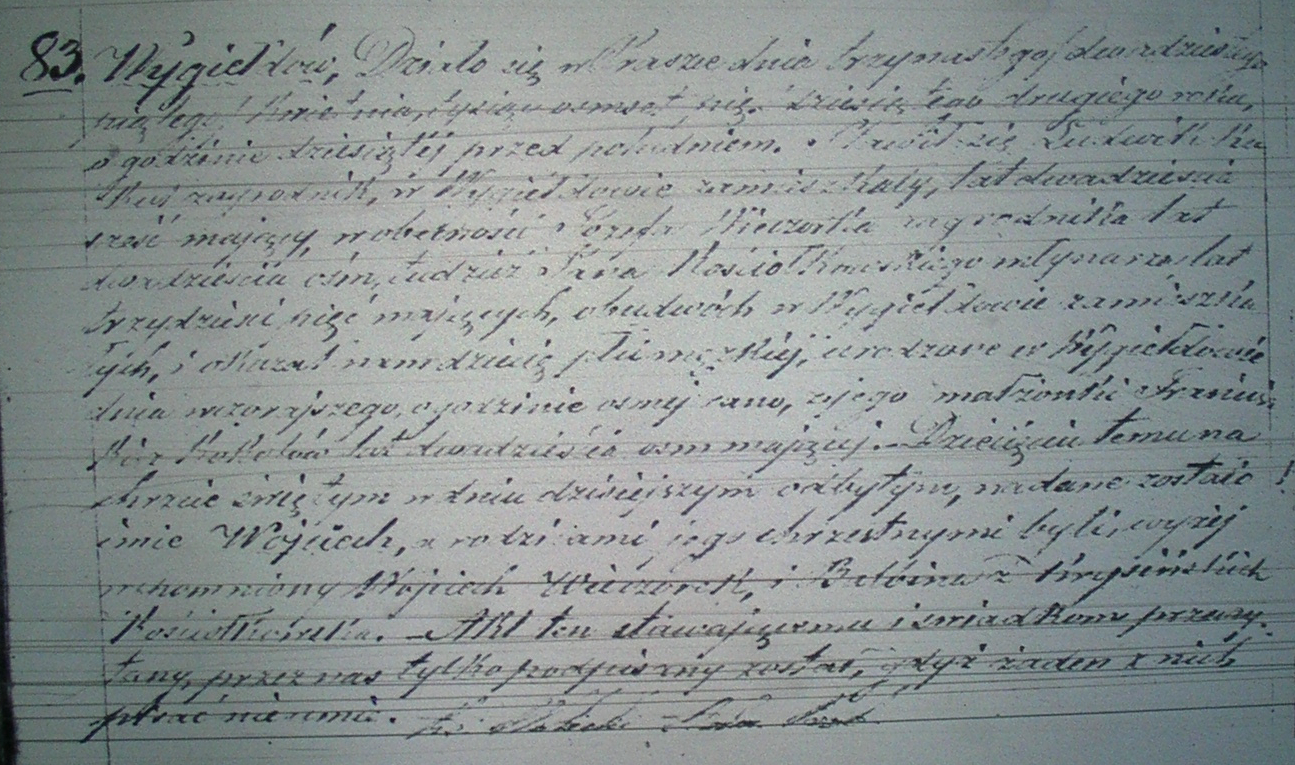 83. Wygiełdów, Działo się w Praszce dnia trzynastego/dwudziestego
piątego/ Kwietnia, tysiąc osmset pięćdziesiątego drugiego roku,
o godzinie dziesiątej przed południem. Stawił się Ludwik
zagrodnik, w Wygiełdowie zamieszkały, lat dwadzieścia
sześć mający, w obecności Józefa Wieczorka zagrodnika lat
dwadzieścia ośm, tudzież Jana Kościołkowskiego młynarza lat
trzydzieści pięć mających, obudwóch w Wygiełdowie zamieszka
łych, i okazał nam dziecię płci męzkiej, urodzone w Wygiełdowie
dnia wczorajszego, o godzinie osmej rano, z jego małżonki Francisz
ki z lat dwadzieścia osm mającej. Dziecięciu temu na
chrzcie świętym w dniu dzisiejszym odbytym, nadane zostało
imie Wojciech, a rodzicami jego chrzestnymi byli, wyżej
wspomniony Wojciech Wieczorek, i z Krysińskich
Kościołkowska. Akt ten stawającemu i świadkom przeczy
tany, przez nas tylko podpisany został, gdyż żaden z nich
pisać nieumie.